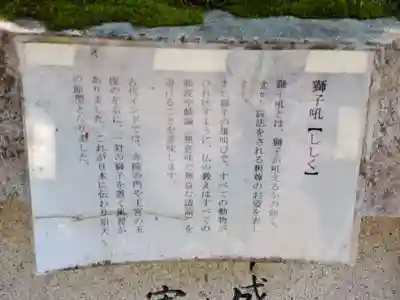 獅子吼【ししく】
獅子吼とは、獅子が吼えるかの如く
説法をされる釈尊のお姿を
また獅子の一吼えで、すべての動物が
ように、仏の教えはすべての
邪説や戯論(無意味・無益な議論)を
退けることを意味します。
古代インドでは、寺院の門や王宮の玉
座の左右に、一対の獅子を置く風習が
ありました。これが日本に伝わり狛犬
の原型となりました。
成
実